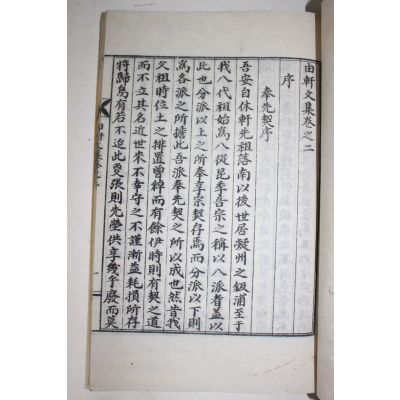 由軒文集卷之二
序
奉先契序
吾安自休軒先祖落南以後世居凝州之鈒浦至于
我八代祖始爲八從昆季吾宗之稱以八派者蓋以
此也分派以上之所奉享宗契存焉而分派以下則
爲各派之所擔此吾派奉先契之所以成也然昔我
父祖時位土之排置曾稗而有餘伊時則有契之道
而不立其名近世來不幸守之不謹漸益耗損所存
將歸烏有若不迨此更張則先塋供享幾乎廢而莫
由軒文集卷之二
一